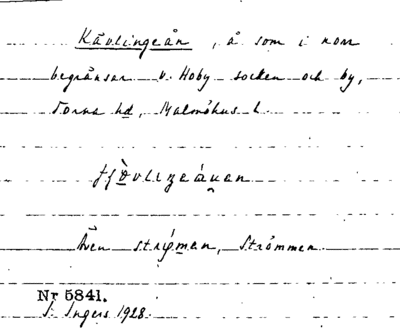 Kävlingeån, å som i norr
begränsar v. Hoby socken och by,
Torna hd, Malmöhus l.
Även strømen, Strömmen
Nr 5841.
I. Ingers 1928.